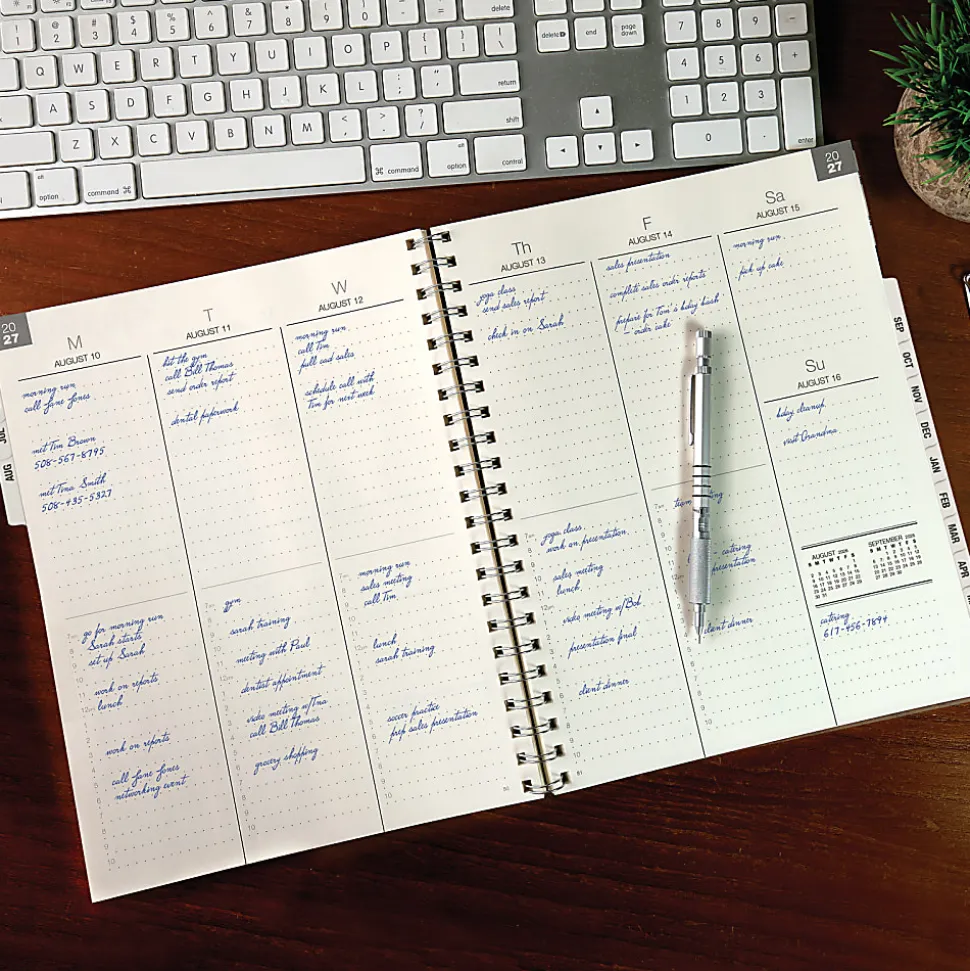 ! 1
@ 2
# 3
$ 4
% 5
^ 6
& 7
* 8
( 9
) 0
delete
Q W E R T Y U I O P { [ } ] | \
A S D F G H J K L : ; " '
return
Z X C V B N M < , > . ? /
shift
alt option
command ⌘
⌘ command
alt option
control
delete
end
page down
7 8 9 −
4 5 6 +
1 2 3
0 .
enter
20 27
M
AUGUST 10
morning run
call Jane Jones
met Tim Brown
508-567-8795
met Tina Smith
508-435-5327
go for morning run
Sarah starts
set up Sarah
work on reports
lunch
work on reports
call Jane Jones
networking event
T
AUGUST 11
hit the gym
call Bill Thomas
send order report
dental paperwork
gym
sarah training
meeting with Paul
dentist appointment
video meeting w/Tna
call Bill Thomas
grocery shopping
W
AUGUST 12
morning run
call Tim
pull ead sales
schedule call with
Tim for next week
morning run
sales meeting
call Tim
lunch
sarah training
soccer practice
prep sales presentation
Th
AUGUST 13
yoga class
send sales report
check in on Sarah
yoga class
work on presentation
sales meeting
lunch
video meeting w/Bob
presentation final
client dinner
F
AUGUST 14
sales presentation
complete sales order reports
prepare for Tom's bday bash
order cake
team
catering
presentation
client dinner
20 27
Sa
AUGUST 15
morning run
pick up cake
Su
AUGUST 16
bday cleanup
visit Grandma
AUGUST
S M T W T F S
SEPTEMBER
S M T W T F S
catering
617-456-7894
JUL
AUG
SEP
OCT
NOV
DEC
JAN
FEB
MAR
APR